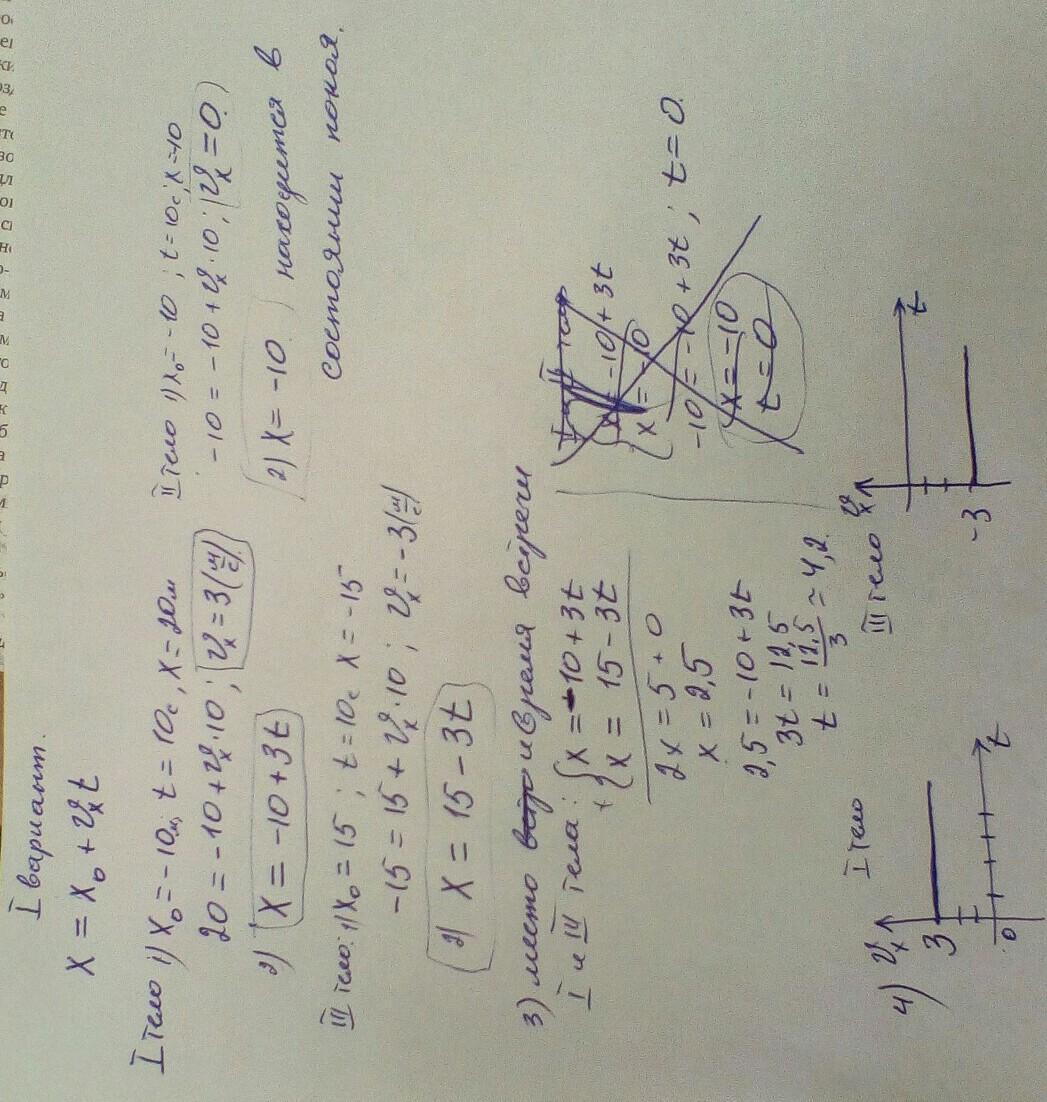 I вариант.
x = x₀ + υₓt
I тело 1) x₀ = -10м; t = 10с, x = 20м
20 = -10 + υₓ·10; υₓ = 3 (м/с)
2) x = -10 + 3t
II тело 1) x₀ = -10; t = 10с; x = -10
-10 = -10 + υₓ·10; υₓ = 0.
2) x = -10. находится в
состоянии покоя.
III тело: 1) x₀ = 15; t = 10с x = -15
-15 = 15 + υₓ·10; υₓ = -3 (м/с)
2) x = 15 - 3t
3) место и время встречи
I и III тела: { x = -10 + 3t
+ { x = 15 - 3t
2x = 5 + 0
x = 2,5
2,5 = -10 + 3t
3t = 12,5
t = 12,5/3 ≈ 4,2
I и II тел
x = -10 + 3t
x = -10
-10 = -10 + 3t; t = 0.
x = -10
t = 0
4) υₓ I тело
3
0
t
υₓ III тело
-3
t